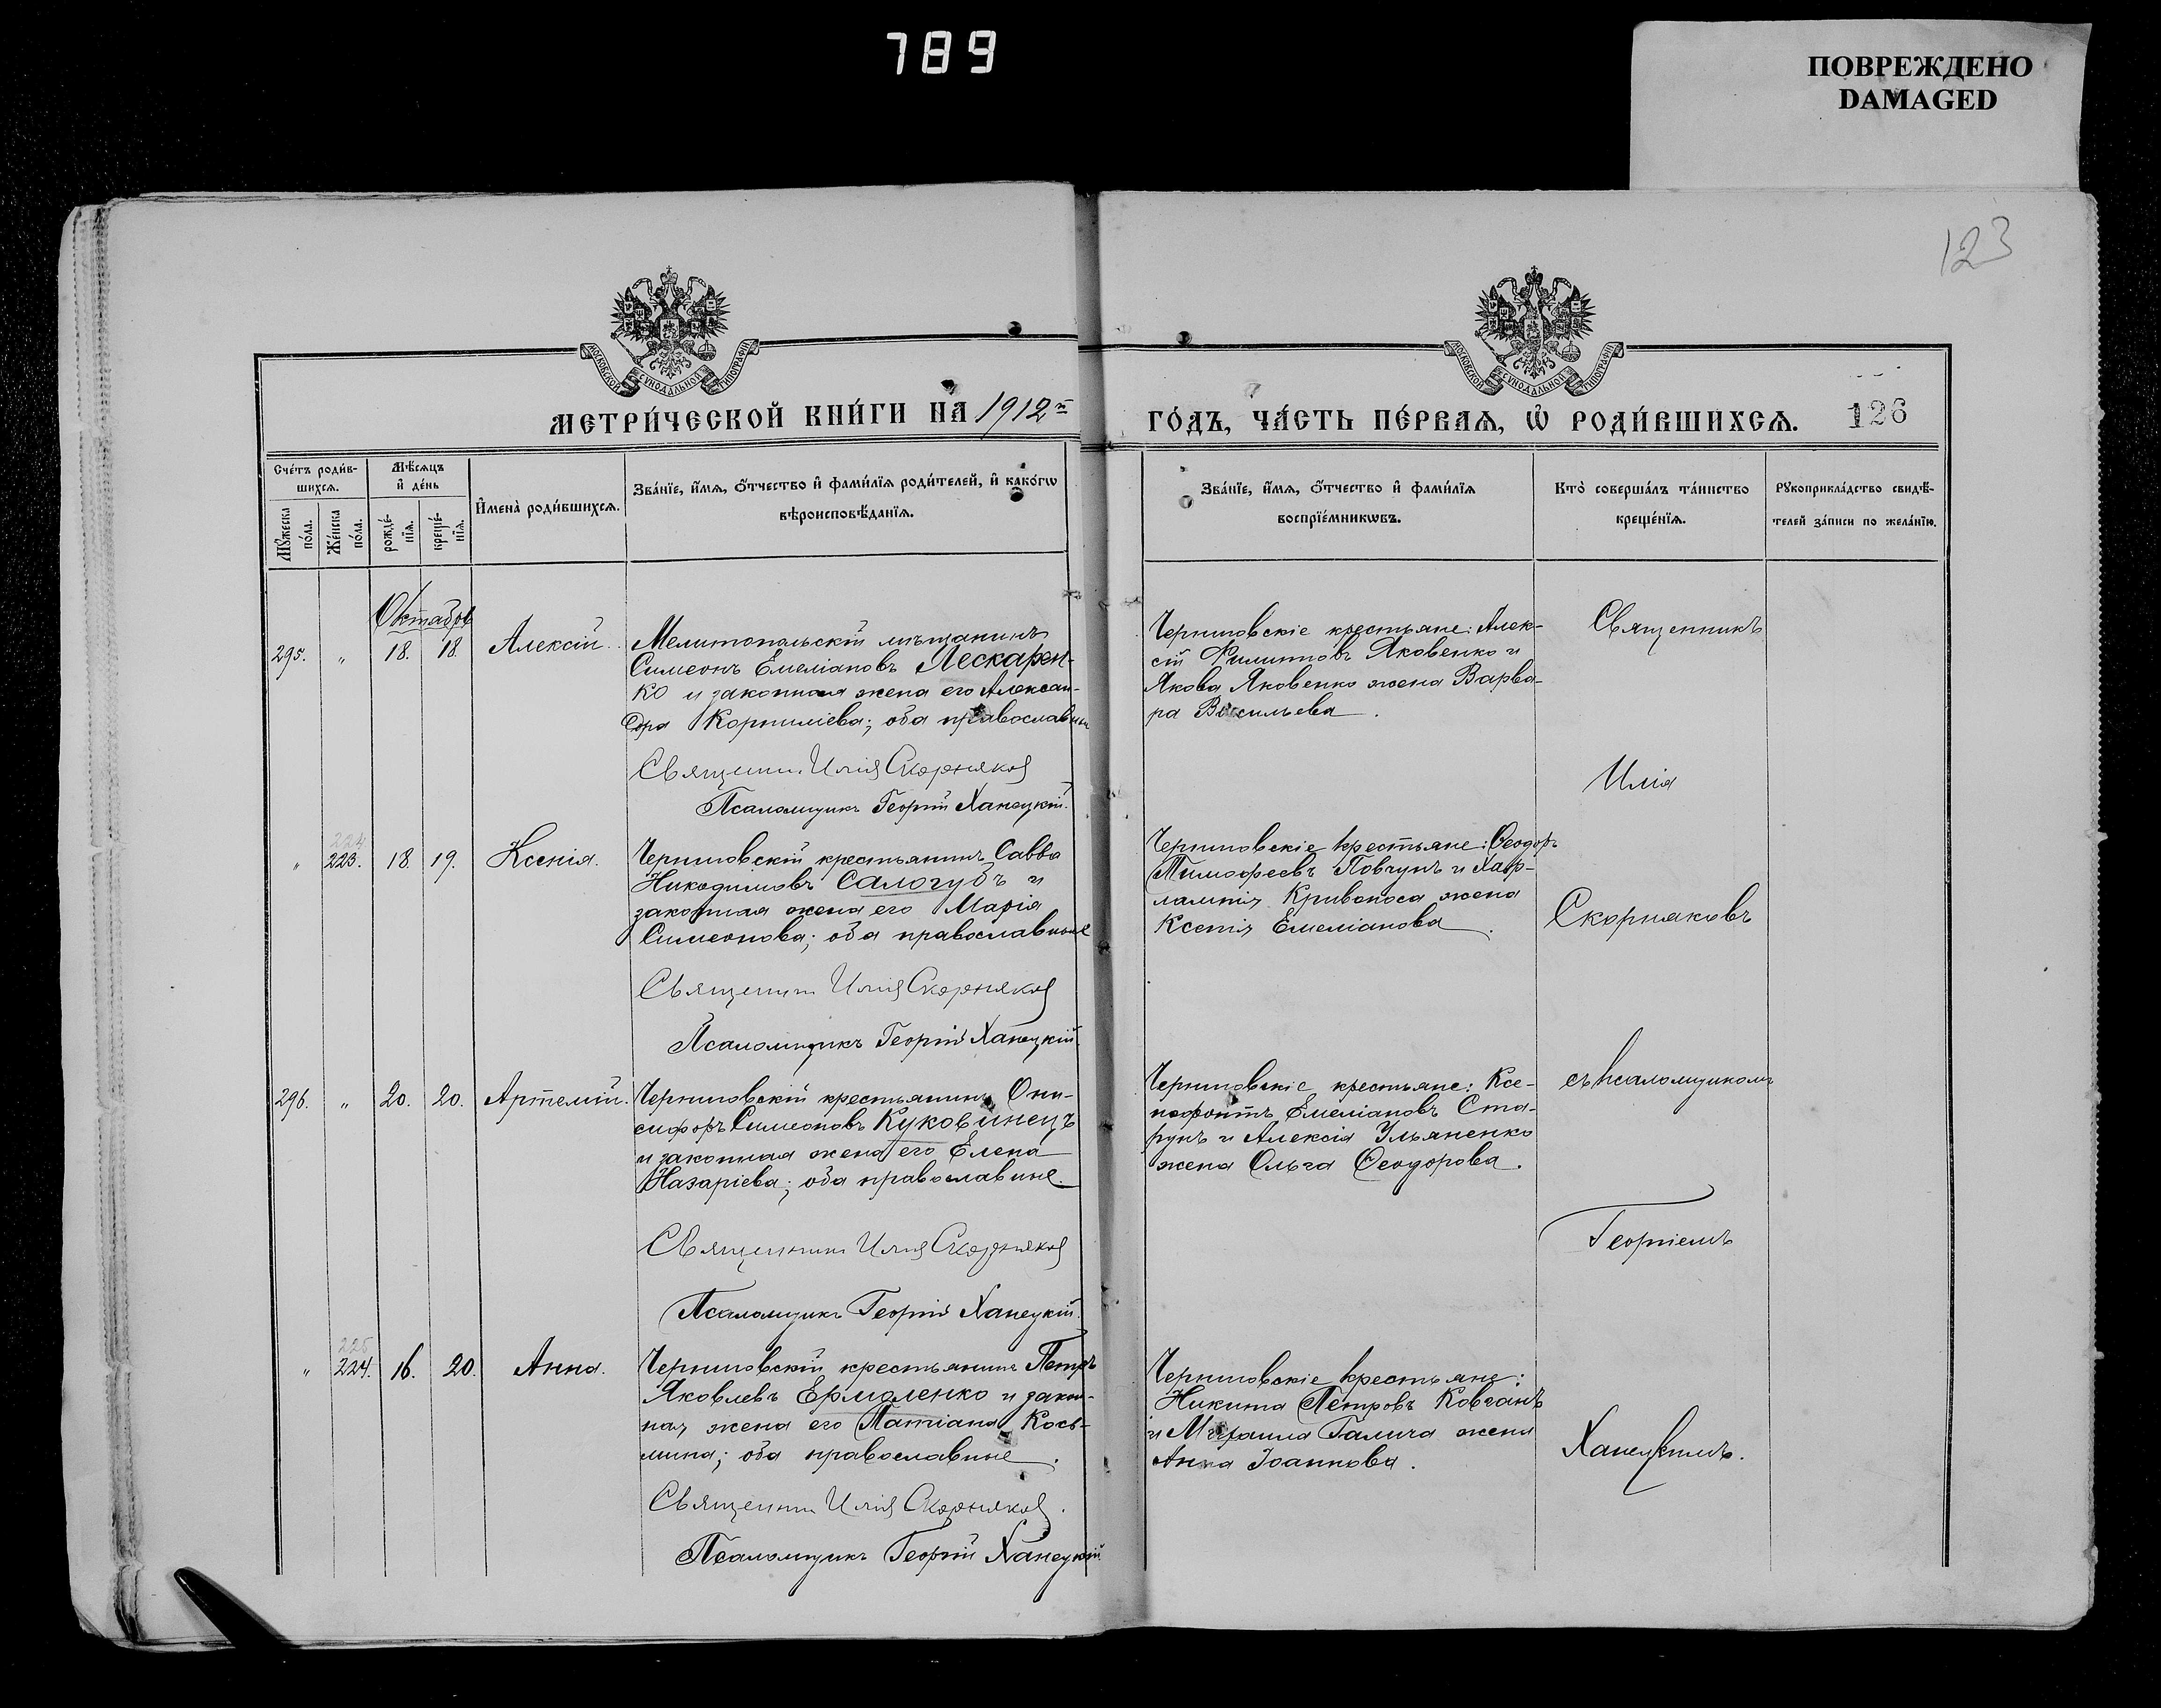 789
ПОВРЕЖДЕНО
DAMAGED
123
МОСКОВСКОЙ СУНОДАЛЬНОЙ ТИПОГРАФІИ
МОСКОВСКОЙ СУНОДАЛЬНОЙ ТИПОГРАФІИ
МЕТРИ́ЧЕСКОЙ КНИ́ГИ НА 1912й
ГО́ДЪ, ЧА́СТЬ ПЕ́РВАѦ, Ѡ҆ РОДИ́ВШИХСѦ. 126
Сче́тъ роди́в-
шихсѧ.
Мꙋ́жеска по́ла.
Же́нска по́ла.
Мѣ́сѧцъ
и҆ де́нь
рожде́-нїѧ.
креще́-нїѧ.
И҆мена̀ роди́вшихсѧ.
Зва́нїе, и҆́мѧ, ѻ҆́тчество и҆ фами́лїѧ роди́телей, и҆ како́гѡ
вѣроисповѣ́данїѧ.
Зва́нїе, и҆́мѧ, ѻ҆́тчество и҆ фами́лїѧ
воспрїе́мникѡвъ.
Кто̀ соверша́лъ та́инство
креще́нїѧ.
Рꙋкоприкла́дство свидѣ́-
телей за́писи по жела́нїю.
Октябрь
295. „ 18. 18. Алексій.
Мелитопольскій мѣщанинъ
Симеонъ Емеліановъ Лескарен-
ко и законная жена его Алексан-
дра Корниліева; оба православные
Священникъ Илія Скорняков
Псаломщикъ Георгій Ханецкій.
Черниговскіе крестьяне: Алек-
сій Филипповъ Яковенко и
Якова Яковенко жена Варва-
ра Васильева.
Священникъ
Илія
Скорняковъ
съ псаломщикомъ
Георгіемъ
Ханецкимъ.
224
„ 223. 18. 19. Ксенія.
Черниговскій крестьянинъ Савва
Никодимовъ Салогубъ и
законная жена его Марія
Симеонова; оба православные
Священникъ Илія Скорняков
Псаломщикъ Георгій Ханецкій.
Черниговскіе крестьяне: Ѳеодоръ
Тимофеевъ Ковгунъ и Хар-
лампія Кривоноса жена
Ксенія Емеліанова.
296. „ 20. 20. Артемій.
Черниговскій крестьянинъ Они-
сифоръ Симеоновъ Куковинецъ
и законная жена его Елена
Назаріева; оба православные.
Священникъ Илія Скорняков
Псаломщикъ Георгій Ханецкій.
Черниговскіе крестьяне: Ксе-
нофонтъ Емеліановъ Ста-
рунъ и Алексія Ульяненко
жена Ольга Ѳеодорова.
225
„ 224. 16. 20. Анна.
Черниговскій крестьянинъ Петръ
Яковлевъ Ермоленко и закон-
ная жена его Татіана Кось-
мина; оба православные.
Священникъ Илія Скорняков.
Псаломщикъ Георгій Ханецкій.
Черниговскіе крестьяне:
Никита Петровъ Ковганъ
и Михаила Галича жена
Анна Іоаннова.